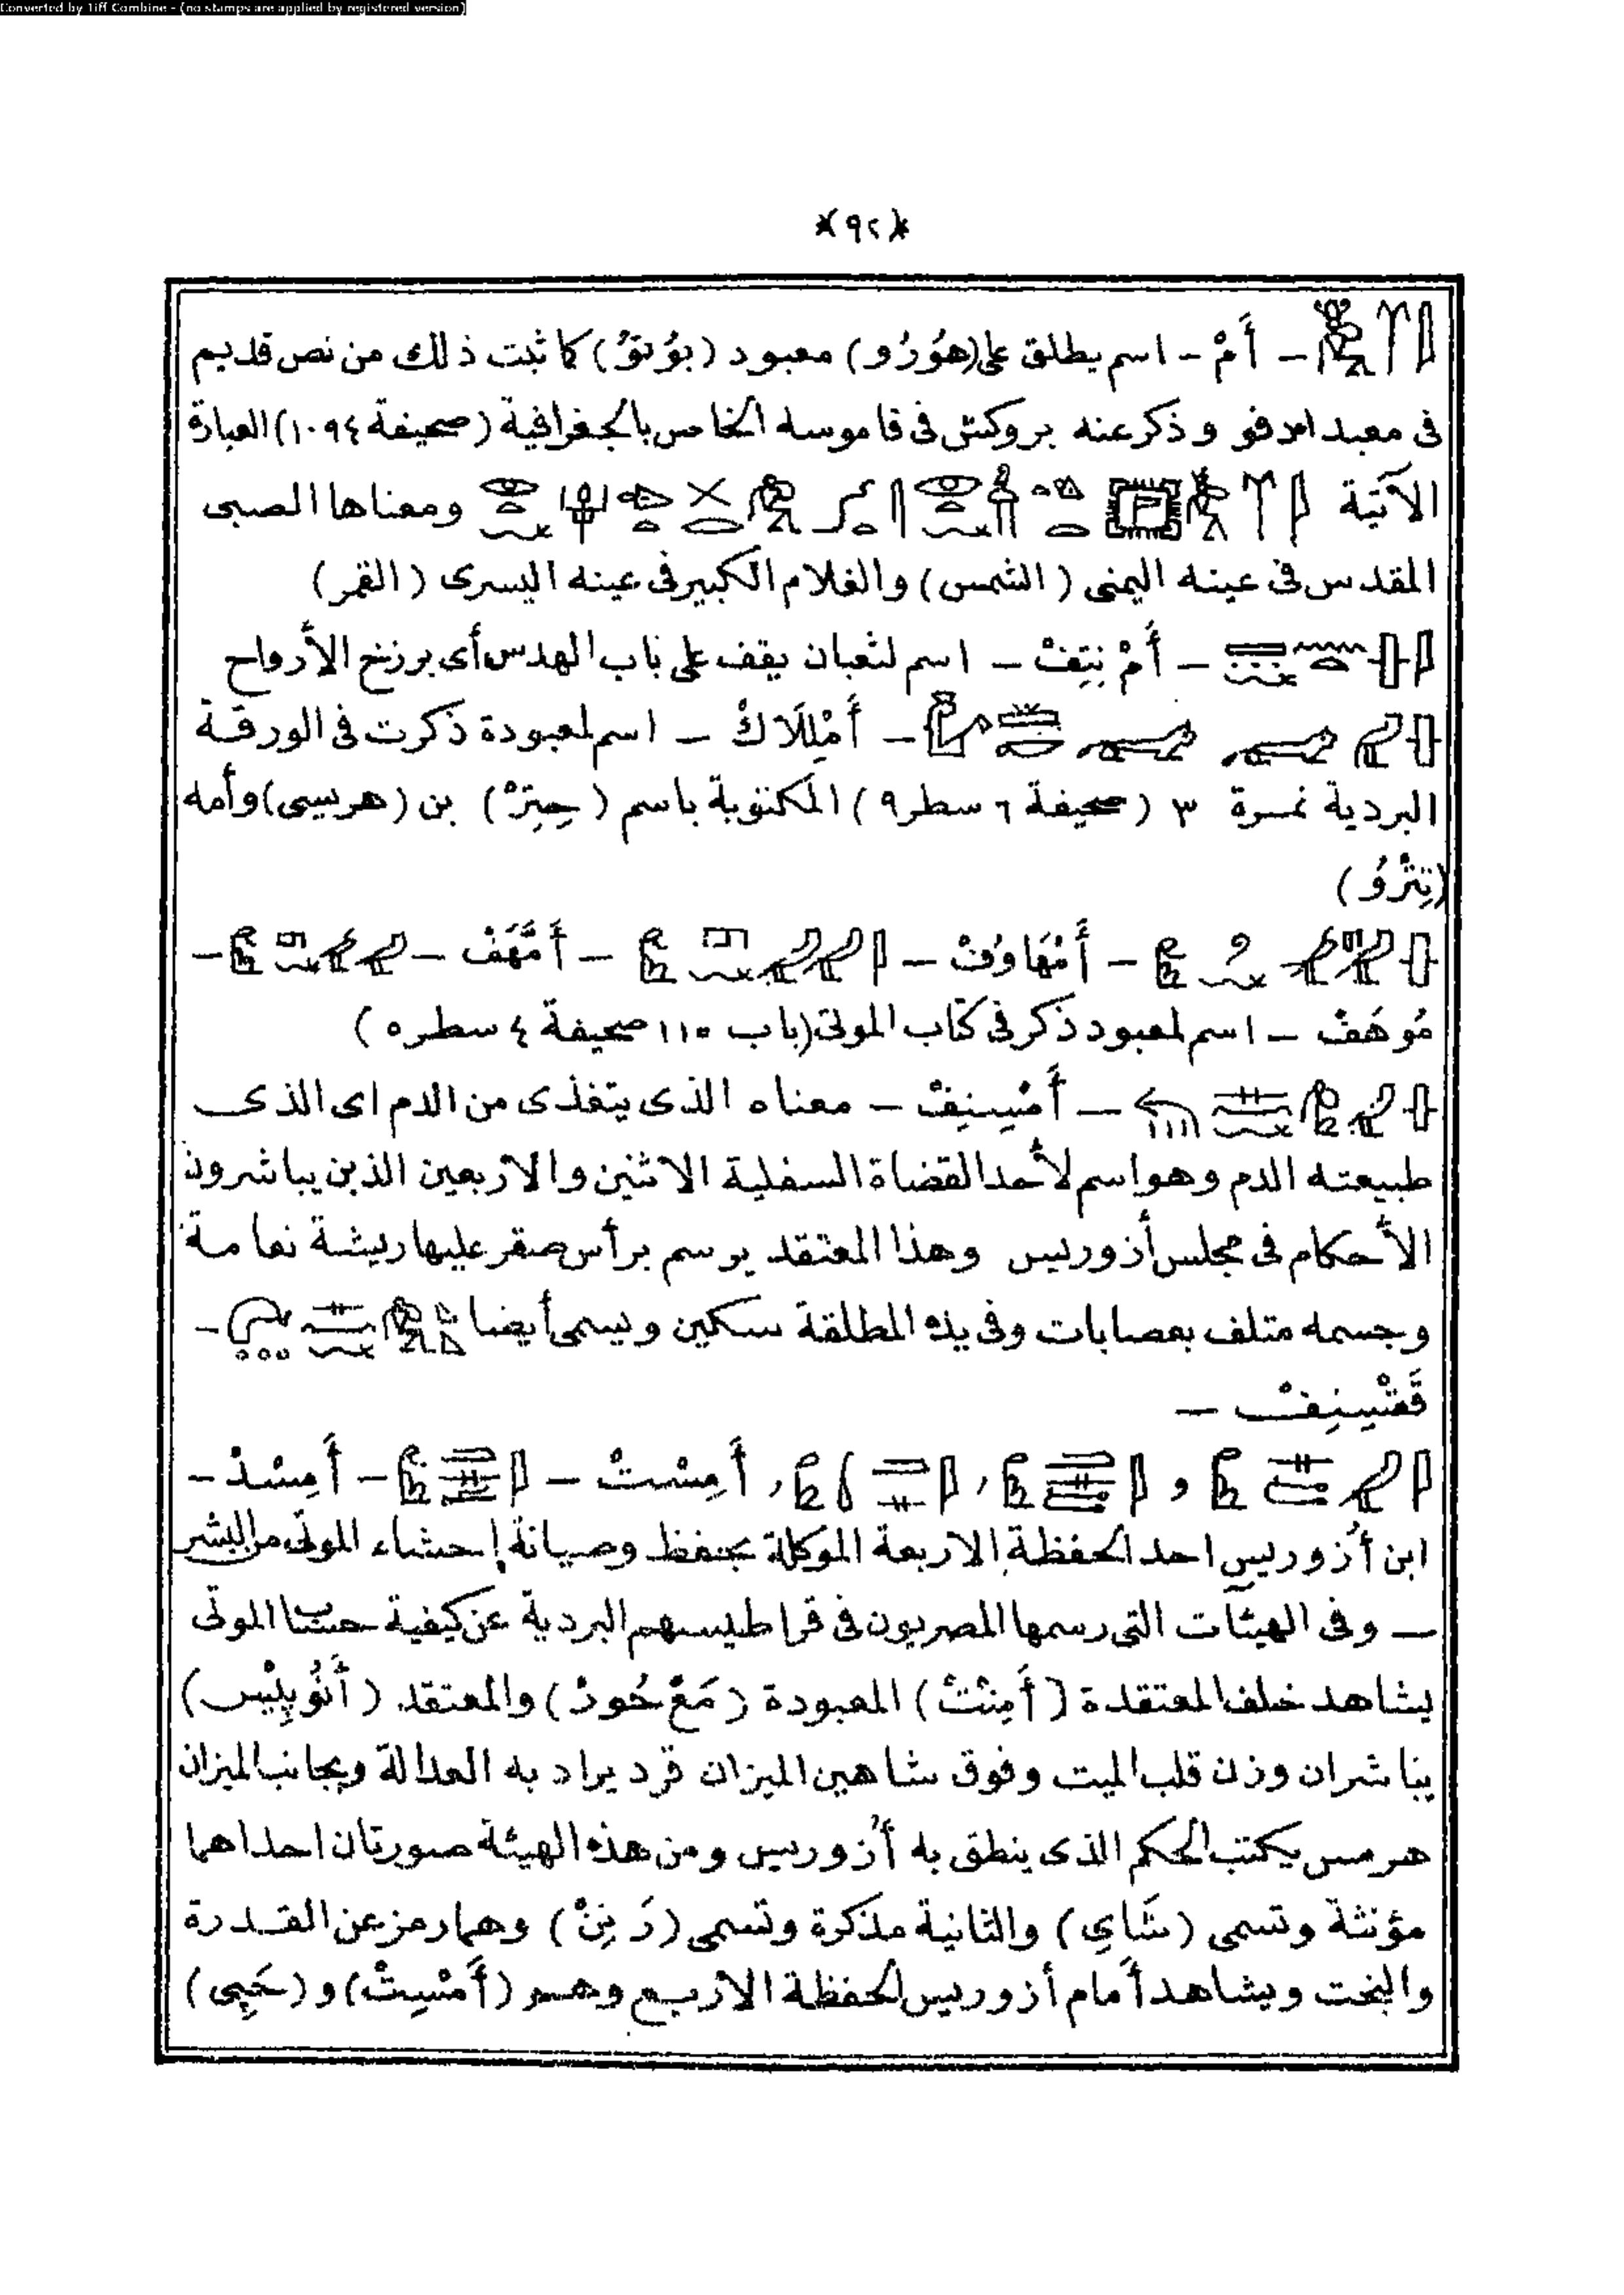 Converted by Tiff Combine - (no stamps are applied by registered version)
*(٩٢)*
– أَمْ – اسم يطلق على (هوُرُو) معبود (بوُتوُ) كما ثبت ذلك من نص قديم
فى معبد ادفو وذكر عنه بروكش فى قاموسه الخاص بالجغرافية (صحيفة ١٠٩٤) العبارة
الآتية ومعناها الصبى
المقدس فى عينه اليمنى (الشمس) والغلام الكبير فى عينه اليسرى (القمر)
– أَمْ نِتِفْ – اسم لثعبان يقف على باب الهدس أى برزخ الأرواح
– أَمْلِلَاكْ – اسم لمعبودة ذكرت فى الورقة
البردية نمرة ٣ (صحيفة ٦ سطر ٩) المكتوبة باسم (حِتِرْ) بن (هرسيى) وأمه
(تِتْرُو)
– أَمْهَاوُفْ – – أَمَّهَفْ – –
مُوهَفْ – اسم لمعبود ذكر فى كتاب الموتى (باب ١١٥ صحيفة ٤ سطر ٥)
– أَمْسِنِفْ – معناه الذى يتغذى من الدم اى الذى
طبيعته الدم وهو اسم لأحد القضاة السفلية الاثنين والاربعين الذين يباشرون
الأحكام فى مجلس أزوريس وهذا المعتقد يرسم برأس صقر عليها ريشة نعامة
وجسمه متلف بعصابات وفى يده المطلقة سكين ويسمى أيضا –
قَمْسِنِفْ –
و , , أَمِسْتْ – – أَمِسْدْ –
ابن أزوريس احد الحفظة الاربعة الموكلة بحفظ وصيانة إحشاء الموتى من البشر
– وفى الهيئات التى رسمها المصريون فى قراطيسهم البردية عن كيفية حساب الموتى
يشاهد خلف المعتقدة (أَمِنْتْ) المعبودة (مَعْ خُودْ) والمعتقد (أَنُوبِيْس)
يباشران وزن قلب الميت وفوق شاهين الميزان قرد يراد به العدالة وبجانب الميزان
هرمس يكتب الحكم الذى ينطق به أزوريس ومن هذه الهيئة صورتان احداهما
مؤنثة وتسمى (شَاىِ) والثانية مذكرة وتسمى (رَنِنْ) وهما رمز عن القدرة
والبخت ويشاهد أمام أزوريس الحفظة الاربع وهم (أَمْسِتْ) و (حَپِى)